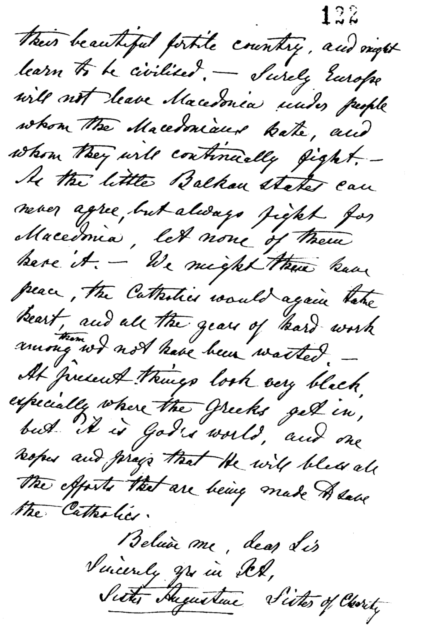 122
their beautiful fertile country, and might
learn to be civilised. — Surely Europe
will not leave Macedonia under people
whom the Macedonians hate, and
whom they will continually fight. —
As the little Balkan states can
never agree, but always fight for
Macedonia, let none of them
have it. — We might then have
peace, the Catholics would again take
heart, and all the years of hard work
among them wd not have been wasted. —
At present things look very black,
especially where the Greeks get in,
but it is God's world, and one
hopes and prays that He will bless all
the efforts that are being made to save
the Catholics.
Believe me, dear Sir
Sincerely yrs in Xt,
Sister Augustine Sister of Charity